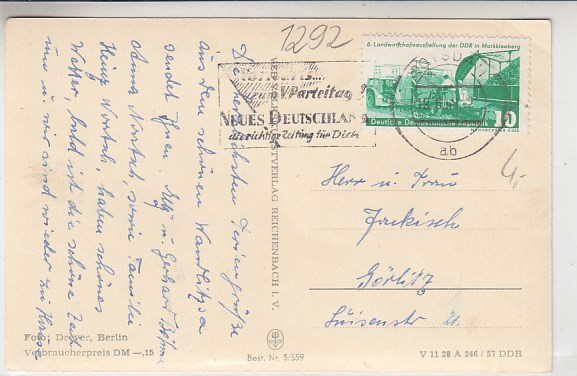 1292
6. Landwirtschaftsausstellung der DDR in Markkleeberg
10
Deutsche Demokratische Republik
Vorwärts...
zum V. Parteitag
NEUES DEUTSCHLAND
die richtige Zeitung für Dich!
ab
4,-
Die herzlichsten Feriengrüße
aus dem schönen Wandlitzsee
sendet Ihnen, u. Gerhard
Anna sowie Familie
Heinz haben schönes
Wetter, bald ist die schöne Zeit
um u. wir sind wieder zu Hause
Herr u. Frau
Jackisch
Görlitz
Luisenstr 21.
VEB VOLKSKUNSTVERLAG REICHENBACH i. V.
Foto: Dreyer, Berlin
Verbraucherpreis DM —,15
Best. Nr. 5/559
V 11 28 A 246 / 57 DDR